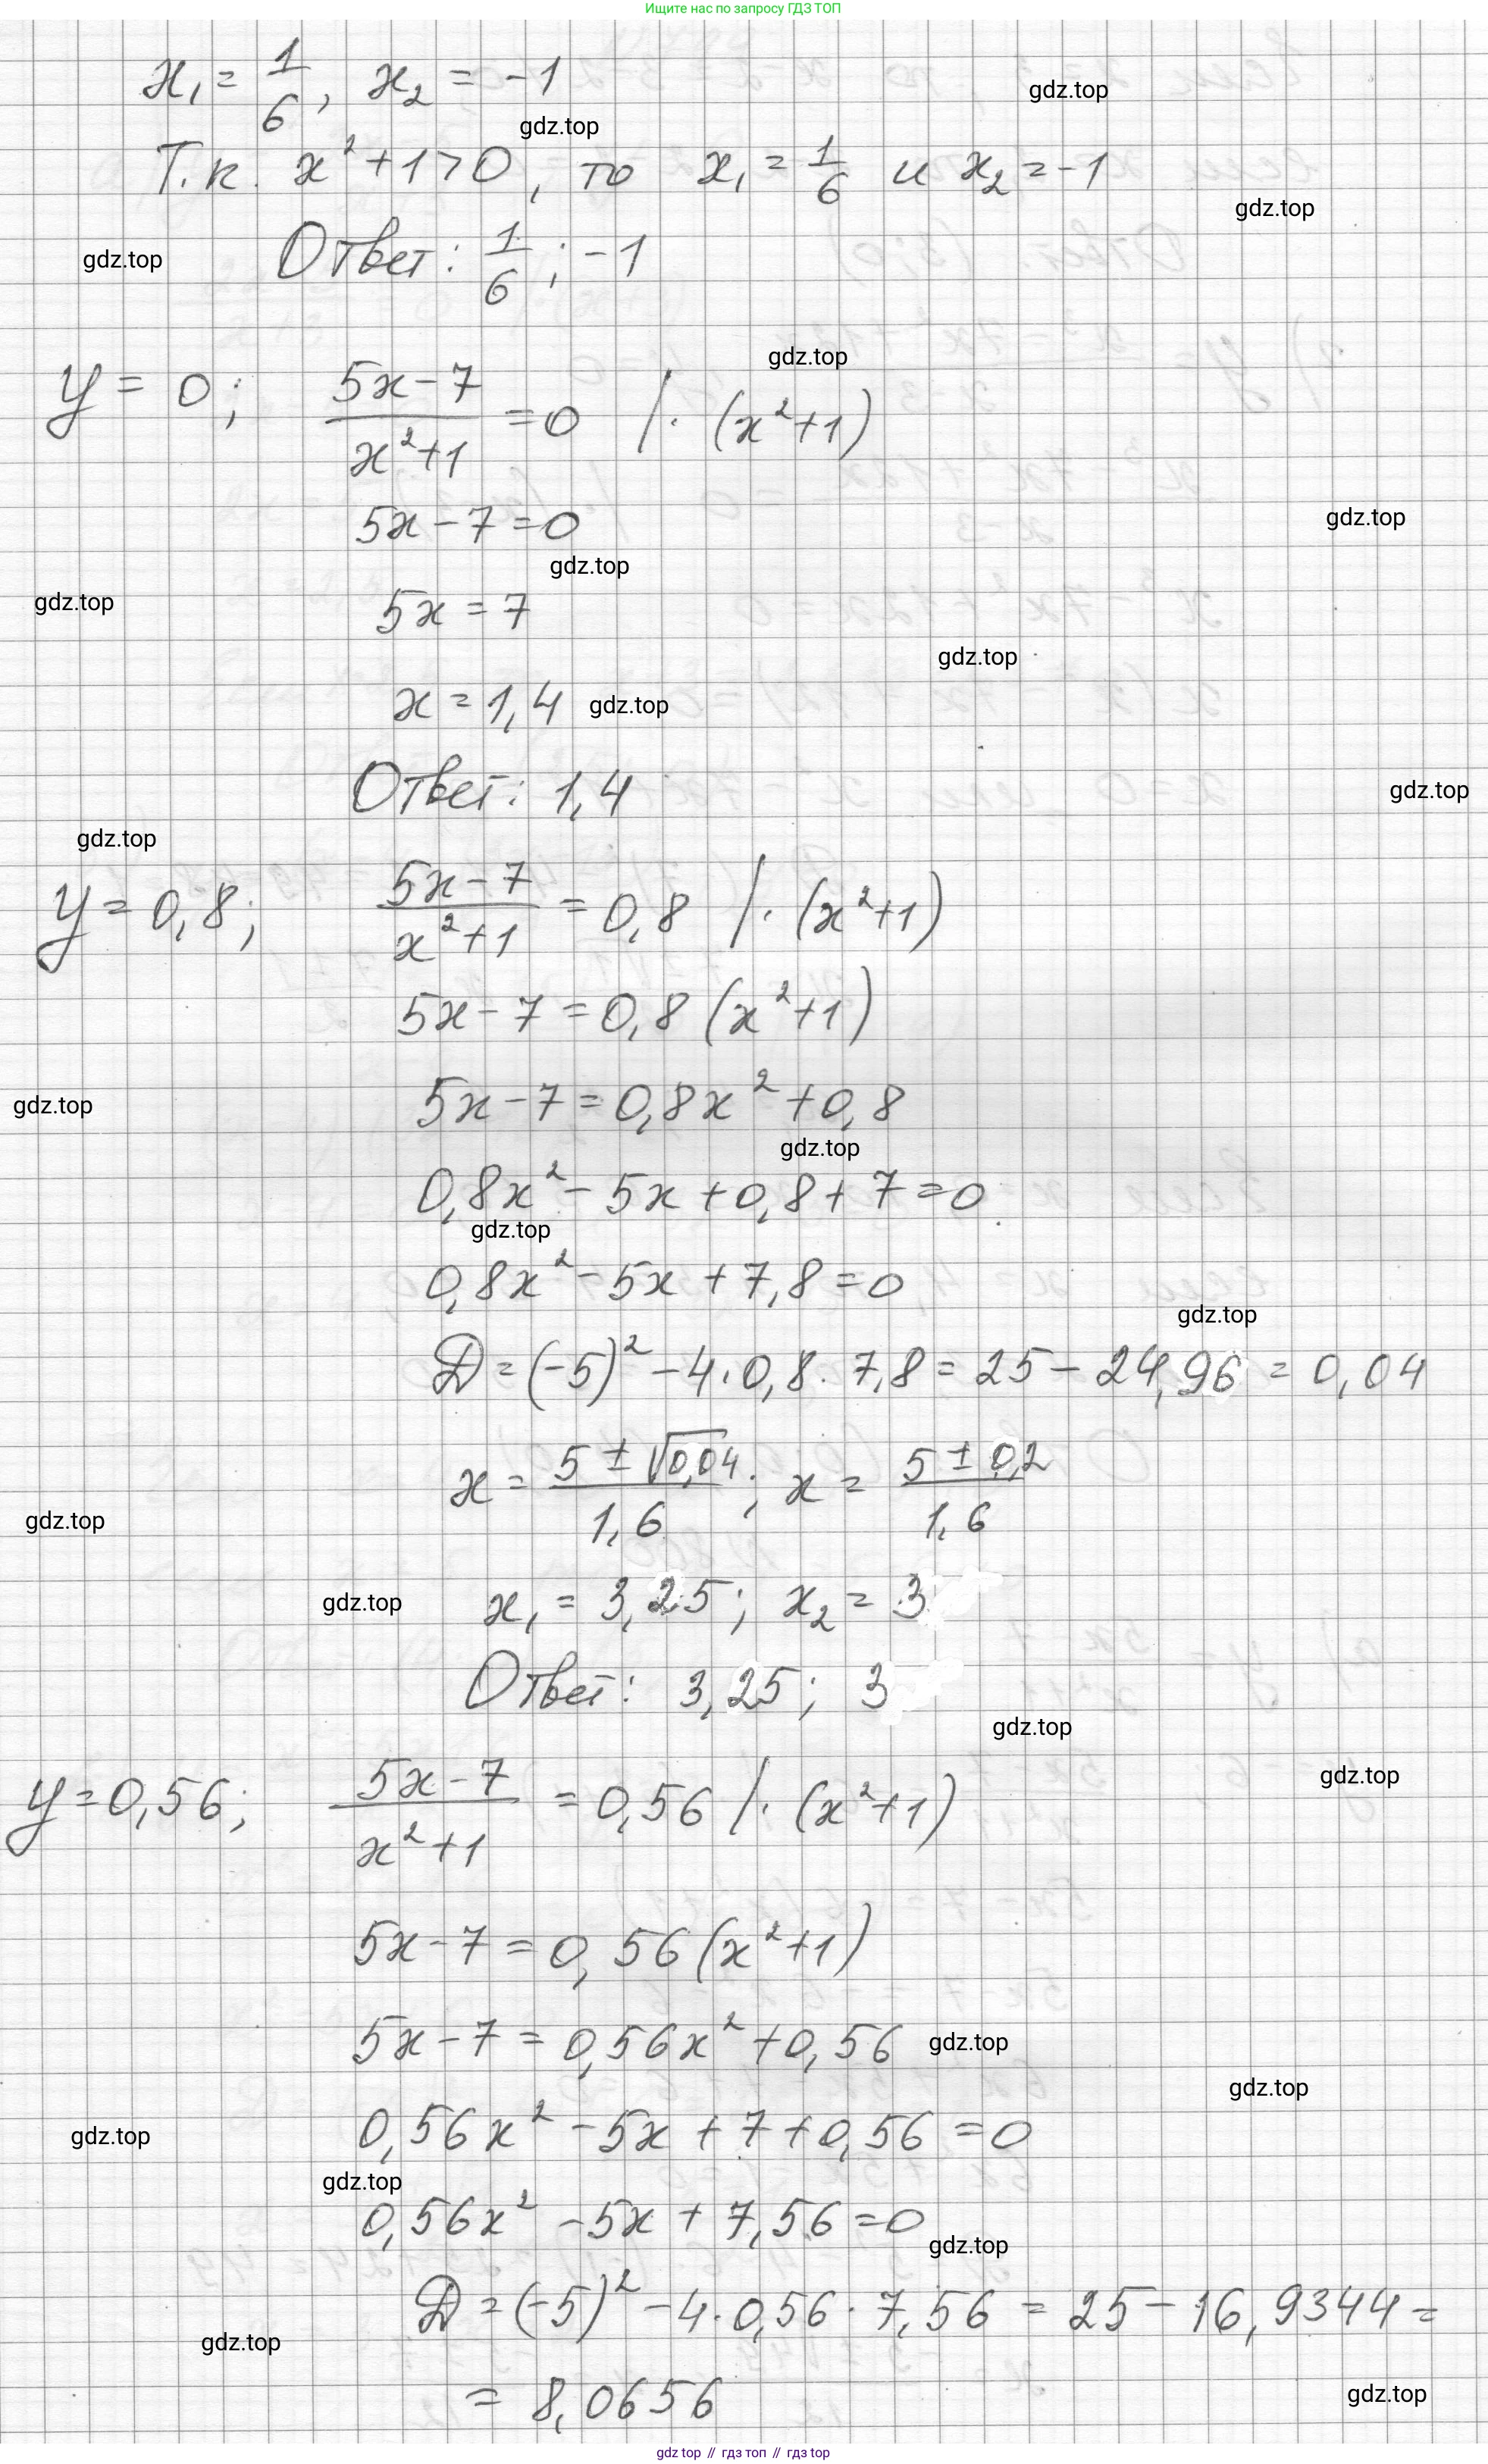 Ищите нас по запросу ГДЗ ТОП
x₁ = 1/6, x₂ = -1
gdz.top
gdz.top
Т.к. x² + 1 > 0, то x₁ = 1/6 и x₂ = -1
gdz.top
Ответ: 1/6; -1
gdz.top
gdz.top
y = 0; (5x - 7)/(x² + 1) = 0 /· (x² + 1)
5x - 7 = 0
gdz.top
gdz.top
gdz.top
5x = 7
gdz.top
x = 1,4
gdz.top
Ответ: 1,4
gdz.top
gdz.top
y = 0,8; (5x - 7)/(x² + 1) = 0,8 /· (x² + 1)
5x - 7 = 0,8 (x² + 1)
5x - 7 = 0,8x² + 0,8
gdz.top
gdz.top
0,8x² - 5x + 0,8 + 7 = 0
gdz.top
0,8x² - 5x + 7,8 = 0
gdz.top
D = (-5)² - 4 · 0,8 · 7,8 = 25 - 24,96 = 0,04
x = (5 ± √0,04)/1,6; x = (5 ± 0,2)/1,6
gdz.top
gdz.top
x₁ = 3,25; x₂ = 3
Ответ: 3,25; 3
gdz.top
gdz.top
y = 0,56; (5x - 7)/(x² + 1) = 0,56 /· (x² + 1)
5x - 7 = 0,56 (x² + 1)
5x - 7 = 0,56x² + 0,56
gdz.top
gdz.top
0,56x² - 5x + 7 + 0,56 = 0
gdz.top
gdz.top
0,56x² - 5x + 7,56 = 0
gdz.top
D = (-5)² - 4 · 0,56 · 7,56 = 25 - 16,9344 =
gdz.top
= 8,0656
gdz.top
gdz top // гдз топ // gdz top